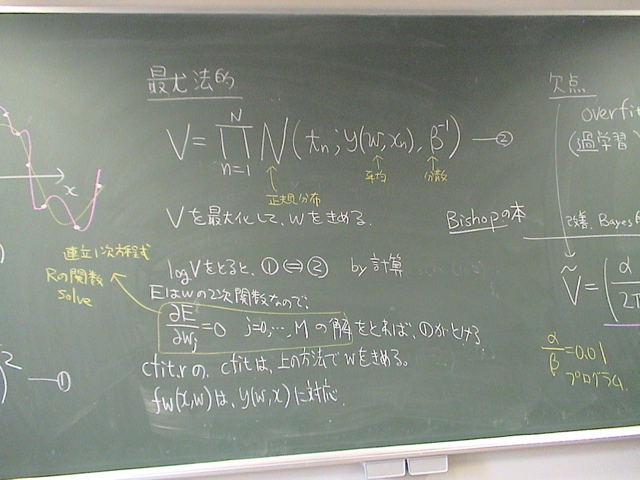 最尤法的
V = ∏_{n=1}^{N} N(t_n; y(w, x_n), β^{-1}) — ②
正規分布
平均
分散
Vを最大化して、wをきめる.
logVをとると、① ⇔ ② by 計算
Eはwの2次関数なので、
∂E/∂w_j = 0 j=0,…,M の解をとれば、①がとける
cfit.r の, cfitは、上の方法でwをきめる。
fw(x,w)は、y(w,x)に対応.
x
連立1次方程式
Rの関数
solve
)² — ①
欠点
overfi
(過学習
Bishopの本
改善. Bayes
Ṽ = (α/2π
α/β = 0.01
プログラム